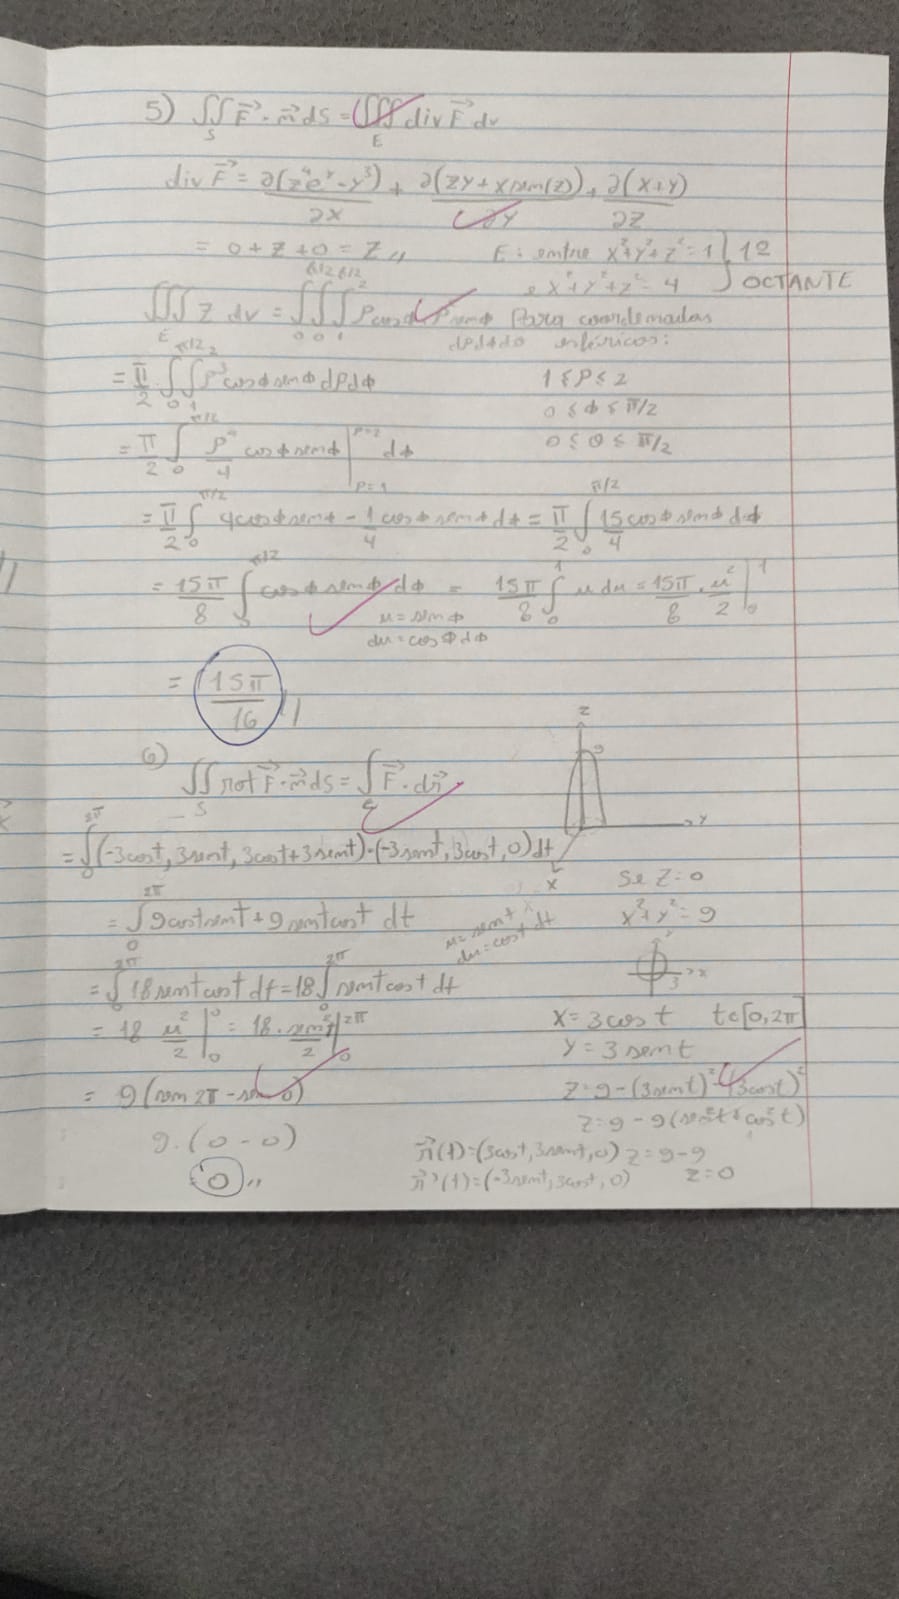 5) ∬_S F⃗·n⃗ dS = ∭_E div F⃗ dv
div F⃗ = ∂(z⁴eʸ - y³)/∂x + ∂(zy + x sen(z))/∂y + ∂(x+y)/∂z
= 0 + z + 0 = z,, E: entre x²+y²+z² = 1 } 1º
e x²+y²+z² = 4 OCTANTE
∭_E z dv = ∫₀^{π/2} ∫₀^{π/2} ∫₁² ρcosϕ ρ²senϕ Para coordenadas
dρdϕdθ esféricas:
= π/2 ∫₀^{π/2} ∫₁² ρ³cosϕ senϕ dρdϕ 1 ≤ ρ ≤ 2
0 ≤ ϕ ≤ π/2
= π/2 ∫₀^{π/2} ρ⁴/4 cosϕ senϕ |_{ρ=1}^{ρ=2} dϕ 0 ≤ θ ≤ π/2
= π/2 ∫₀^{π/2} 4cosϕ senϕ - 1/4 cosϕ senϕ dϕ = π/2 ∫₀^{π/2} 15/4 cosϕ senϕ dϕ
= 15π/8 ∫₀^{π/2} cosϕ senϕ dϕ = 15π/8 ∫₀¹ u du = 15π/8 · u²/2 |₀¹
u = senϕ
du = cosϕ dϕ
= 15π/16 //
z
6) 9
∬_S rot F⃗·n⃗ dS = ∫ F⃗·dr⃗
y
= ∫₀^{2π} (-3cost, 3sent, 3cost+3sent)·(-3sent, 3cost, 0) dt
x
Se z=0
= ∫₀^{2π} 9cost sent + 9sent cost dt x²+y² = 9
u = sent
du = cost dt
= ∫₀^{2π} 18 sent cost dt = 18 ∫₀^{2π} sent cost dt 3 x
= 18 u²/2 |₀⁰ = 18·sen²t/2 |₀^{2π} x = 3cost t∈[0,2π]
y = 3sent
= 9(sen 2π - sen 0) z = 9-(3sent)²-(3cost)²
z = 9-9(sen²t+cos²t)
9·(0-0) r⃗(t)=(3cost, 3sent, 0) z = 9-9
0,, r⃗'(t)=(-3sent, 3cost, 0) z=0